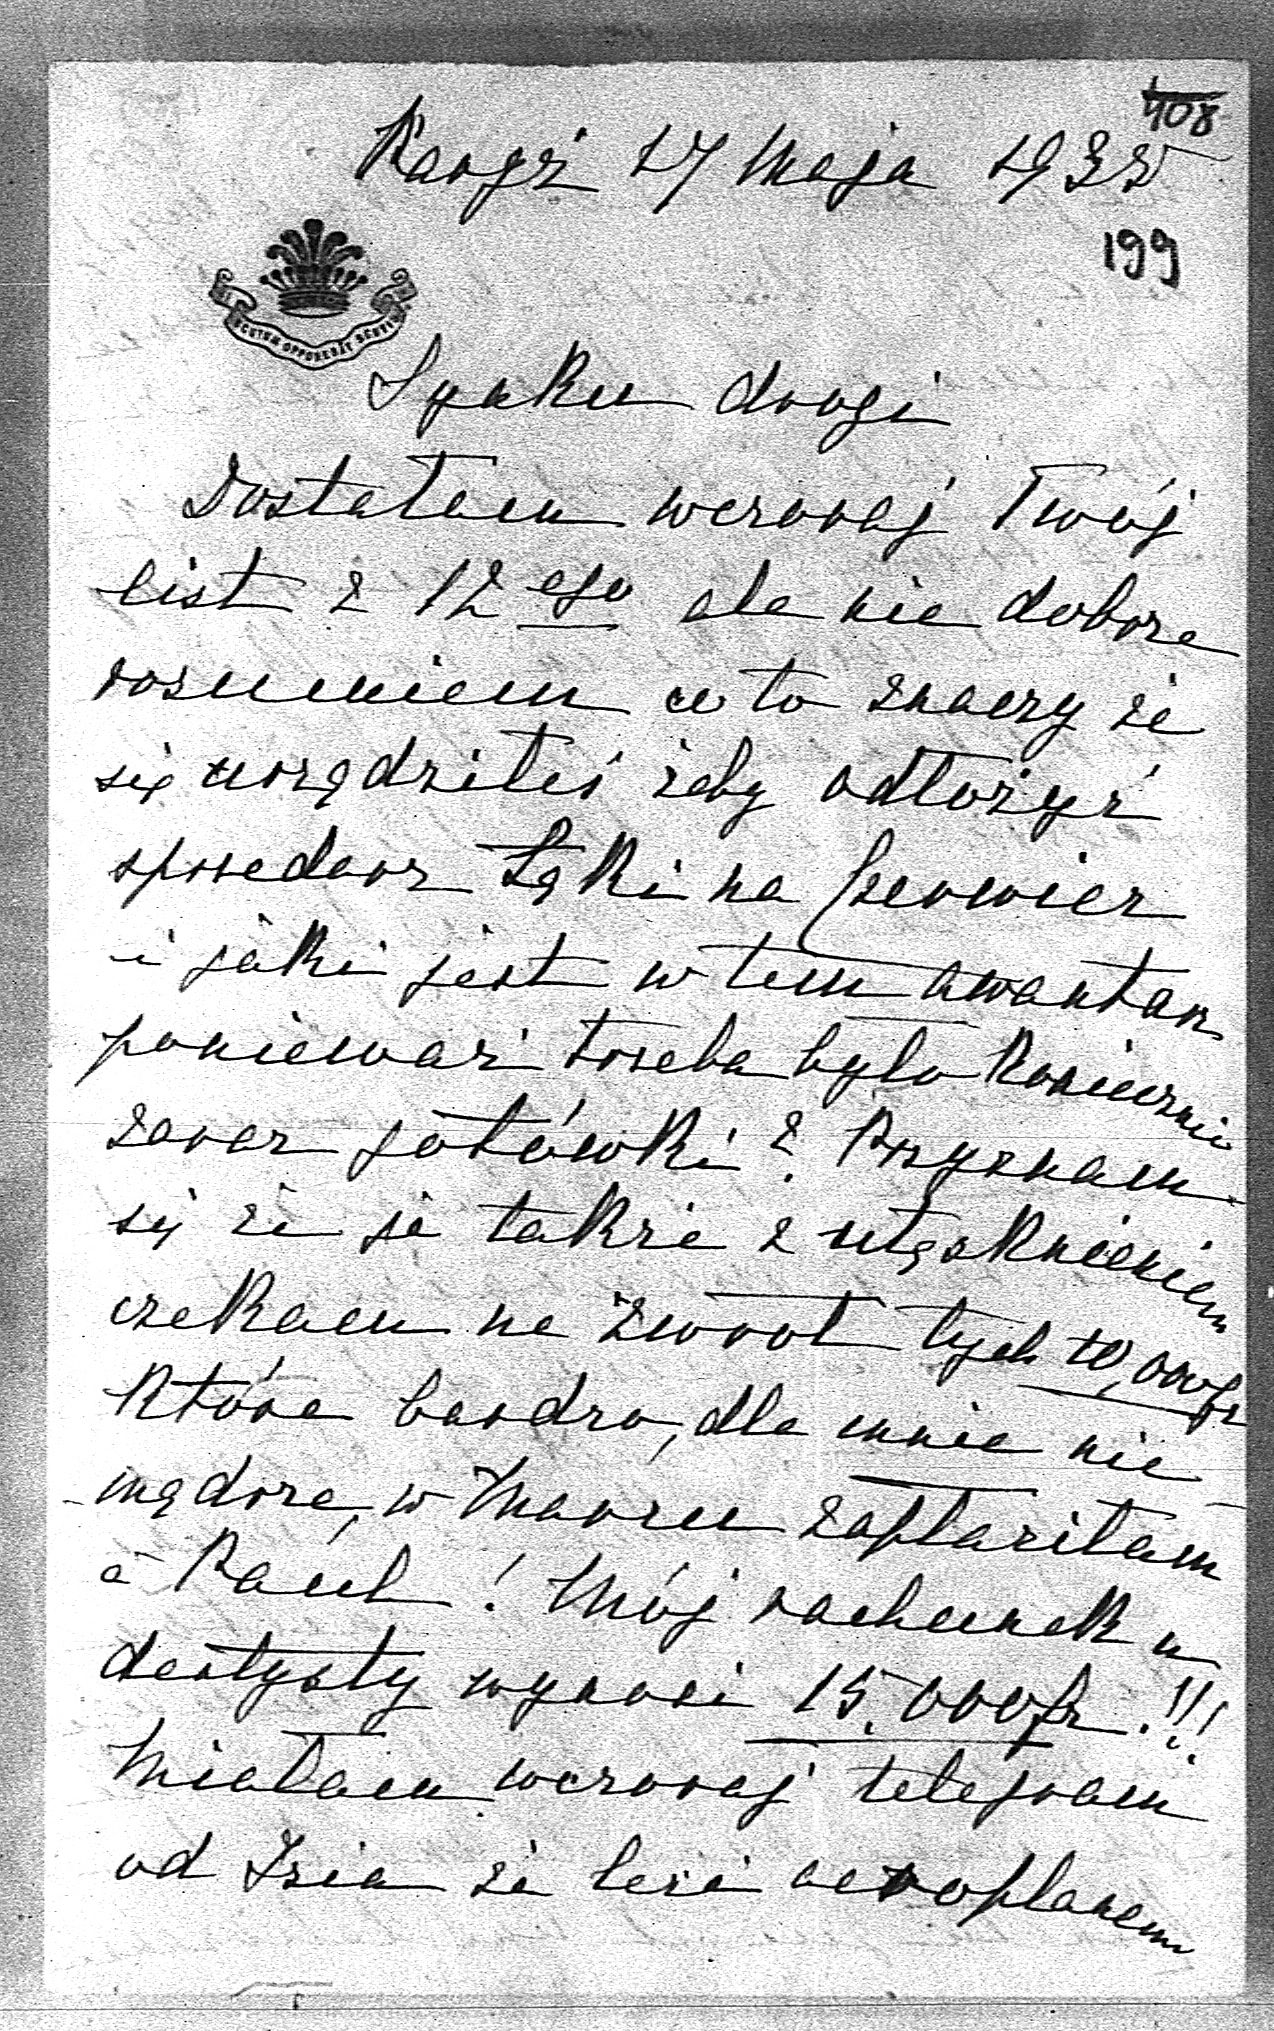 408
Paryż 17 maja 1932
199
SCUTUM OPPONEBAT SCUTIS
Synku drogi
Dostałam wczoraj Twój
list z 12 ego ale nie dobrze
rozumiem co to znaczy że
się urządziłeś żeby odłożyć
sprzedarz Łąki na czerwiec
i jaki jest w tem awantaż
ponieważ trzeba było koniecznie
zaraz gotówki? Przyznam
się że ja także z utęsknieniem
czekam na zwrot tych 10,000 fr
które bardzo, dla mnie nie
mądrze, w Marcu zapłaciłam
à Paul! Mój rachunek u
dentysty wynosi 15.000 fr.!!!
Miałam wczoraj telegram
od Izia że leci aeroplanem